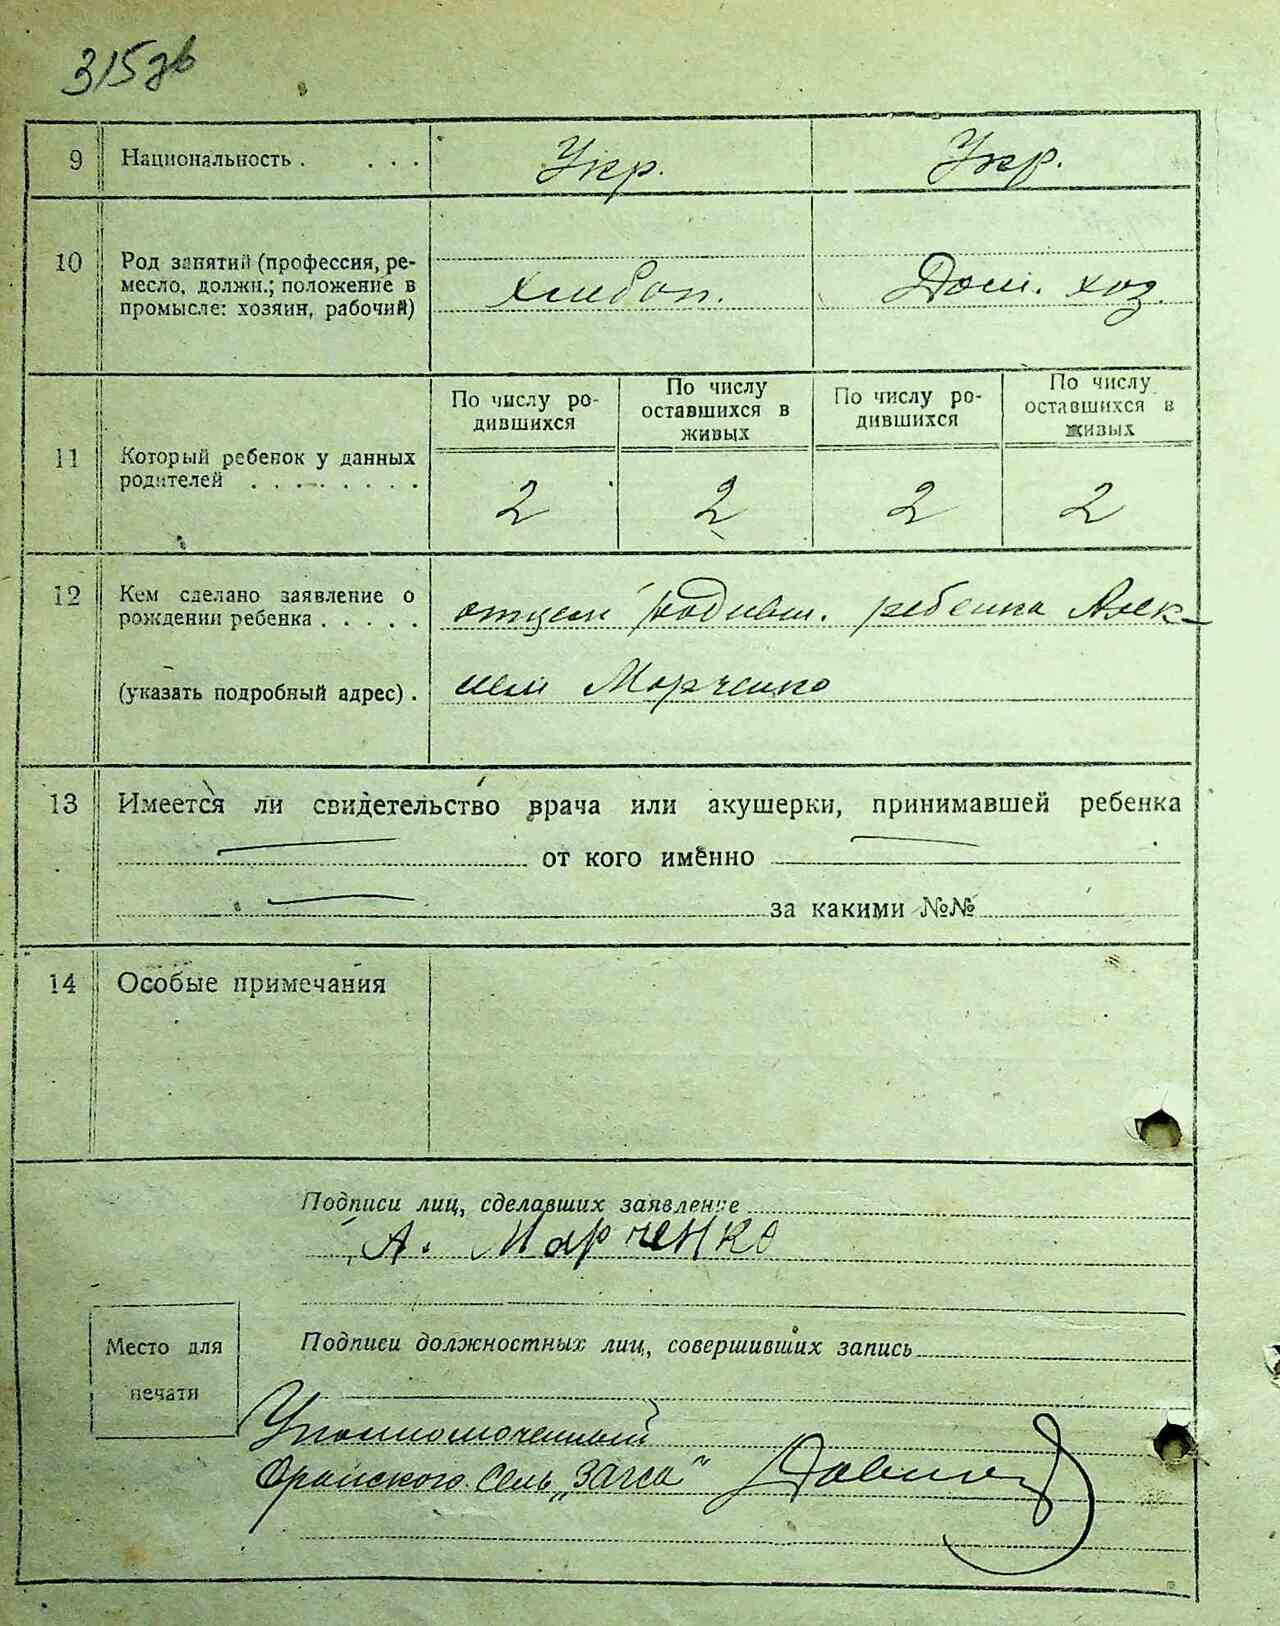 315зв
9 Национальность . . . . Укр. Укр.
10 Род занятий (профессия, ре-
месло, должн.; положение в
промысле: хозяин, рабочий)
хлебоп. Дом. хоз.
11 Который ребенок у данных
родителей . . . . . . . .
По числу ро-
дившихся
По числу
оставшихся в
живых
По числу ро-
дившихся
По числу
оставшихся в
живых
2 2 2 2
12 Кем сделано заявление о
рождении ребенка . . . . .
(указать подробный адрес) .
отцем родивш. ребенка Алек-
сеем Марченко
13 Имеется ли свидетельство врача или акушерки, принимавшей ребенка
от кого именно
за какими №№
14 Особые примечания
Подписи лиц, сделавших заявление
А. Марченко
Место для
печати
Подписи должностных лиц, совершивших запись
Уполномоченный
Сель „Загса“